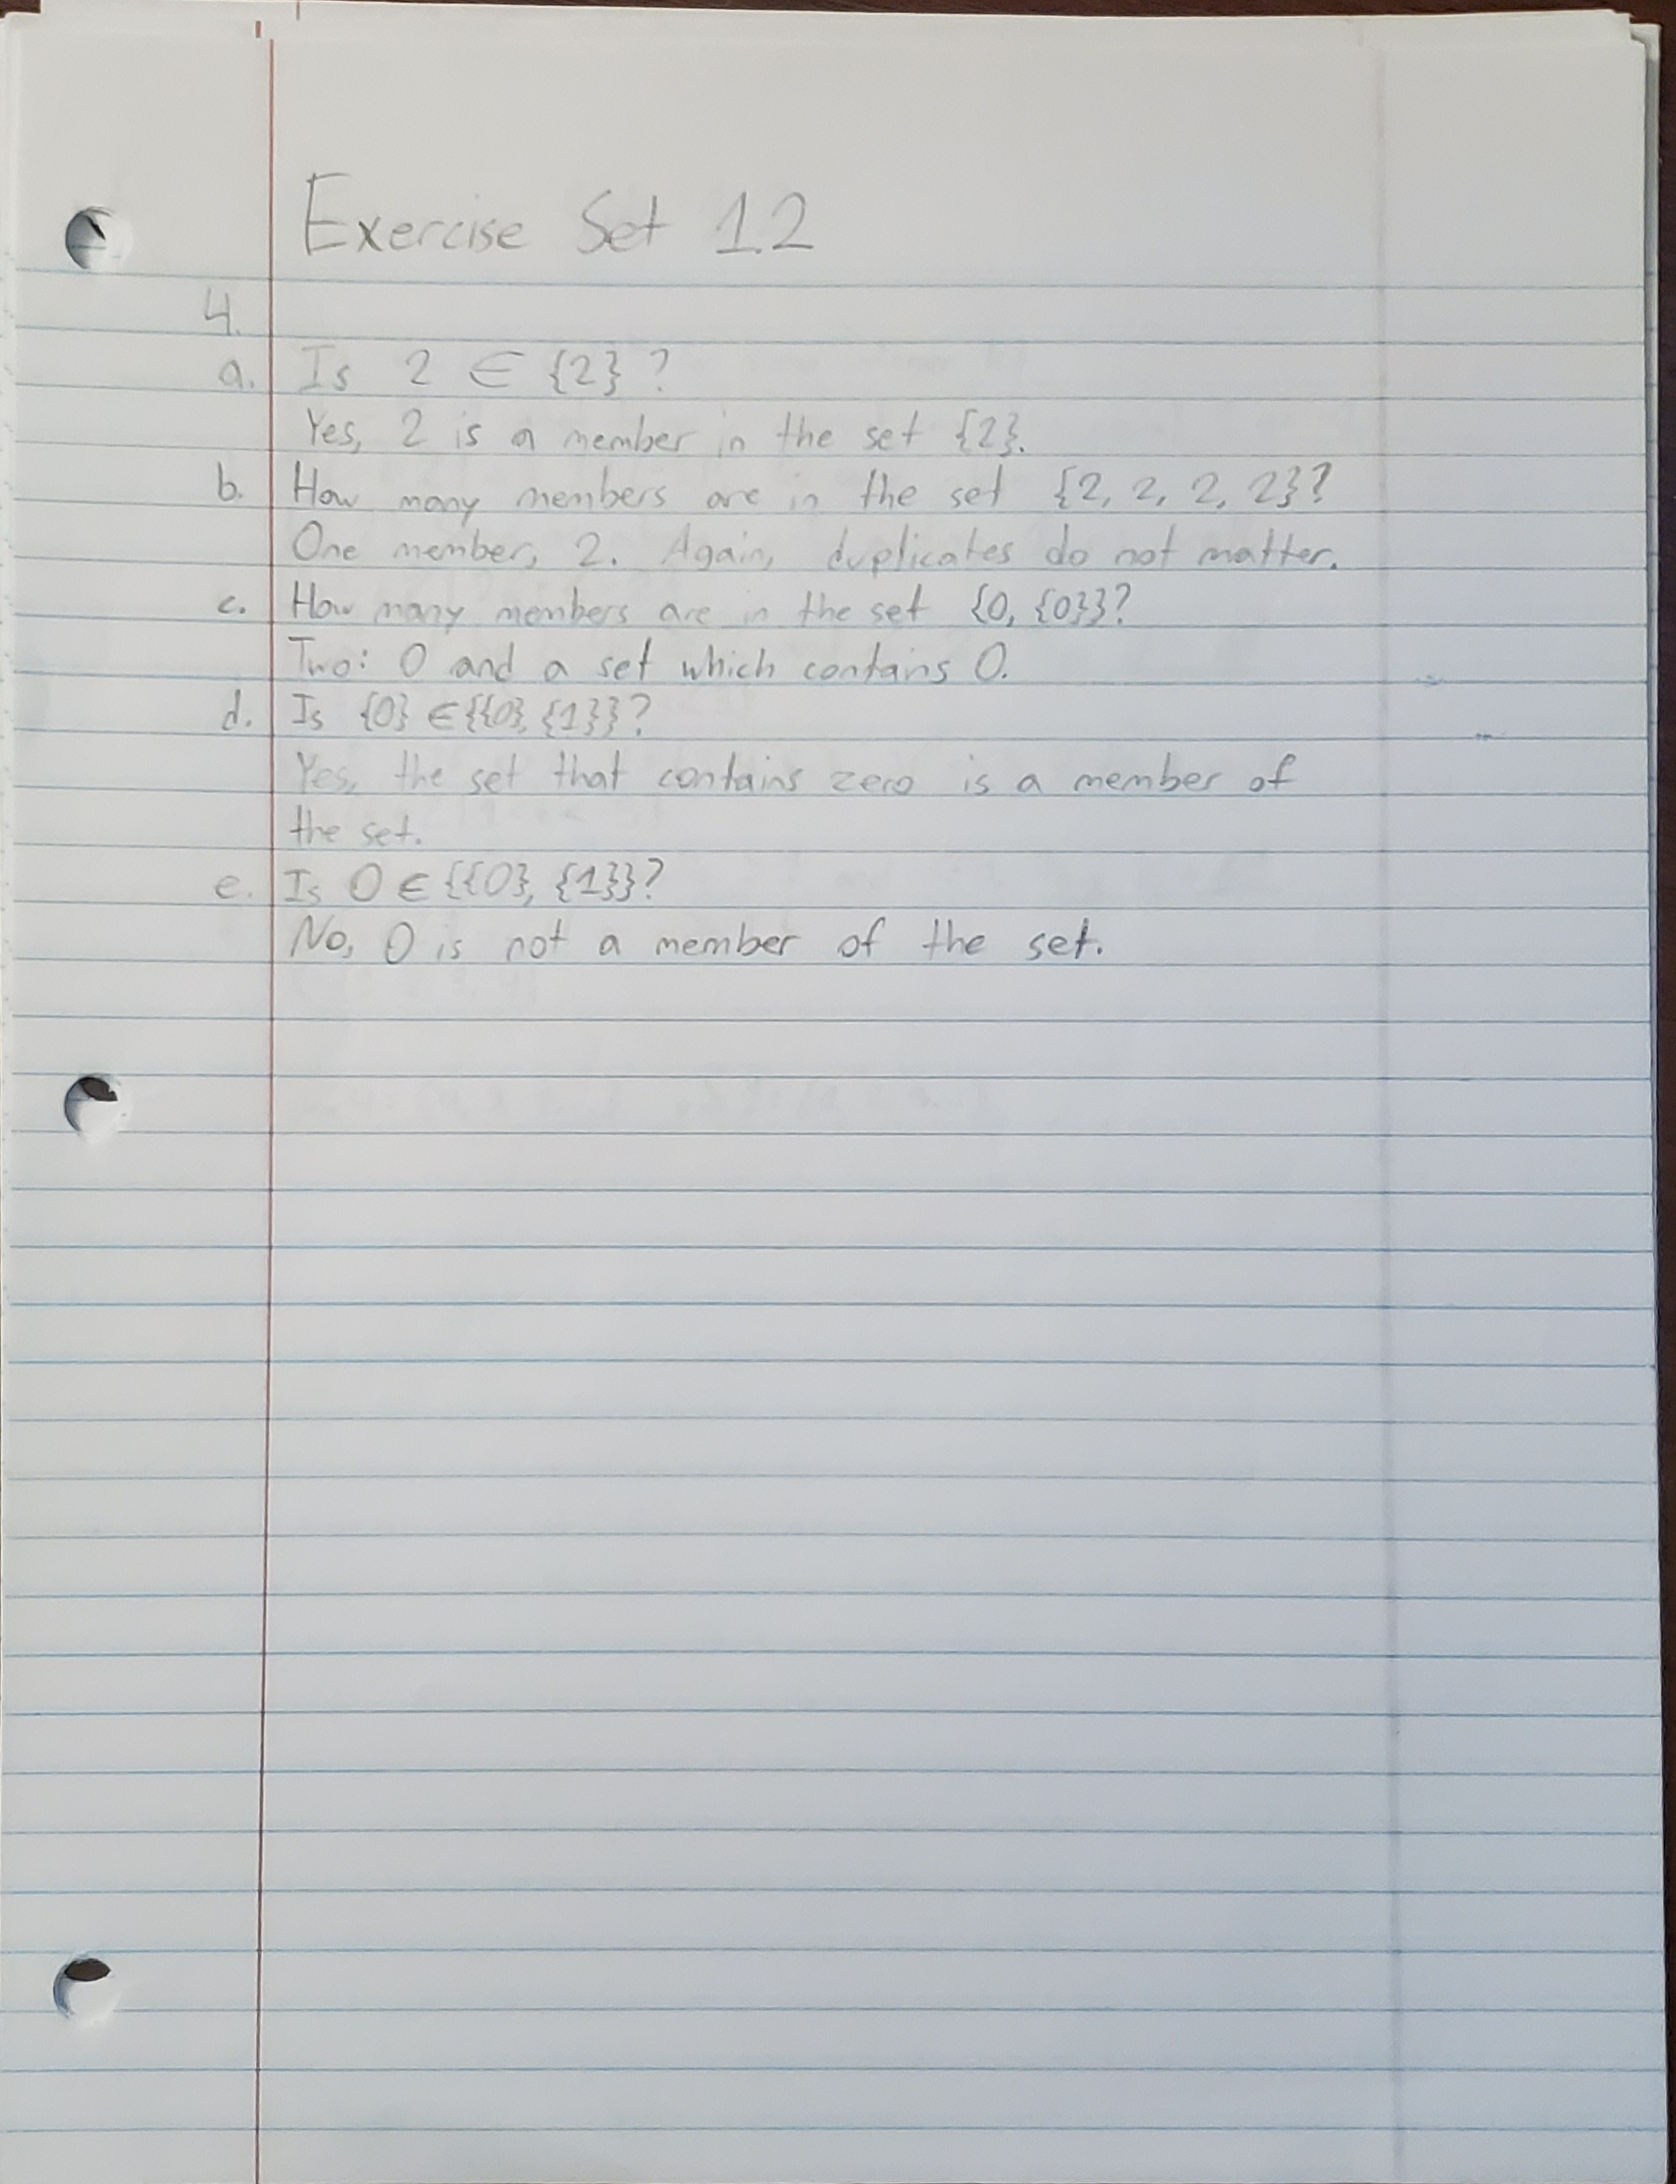 Exercise Set 1.2
4.
a. Is 2 ∈ {2}?
Yes, 2 is a member in the set {2}.
b. How many members are in the set {2, 2, 2, 2}?
One member, 2. Again, duplicates do not matter.
c. How many members are in the set {0, {0}}?
Two: 0 and a set which contains 0.
d. Is {0} ∈ {{0}, {1}}?
Yes, the set that contains zero is a member of
the set.
e. Is 0 ∈ {{0}, {1}}?
No, 0 is not a member of the set.